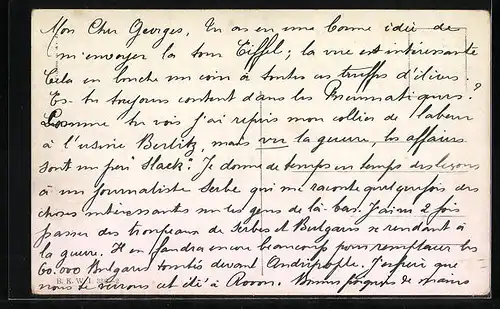 Mon Cher Georges, Tu as eu une bonne idée de
m'envoyer la tour Eiffel; la vue est intéressante
Cela en bouche un coin à toutes ces truffes d'élèves.
Es-tu toujours content dans les Pneumatiques?
Comme tu vois j'ai repris mon collier de labeur
à l'usine Berlitz, mais vu la guerre, les affaires
sont un peu "slack". Je donne de temps en temps des leçons
à un journaliste serbe qui me raconte quelquefois des
choses intéressantes sur les gens de là-bas. J'ai vu 2 fois
passer des troupeaux de Serbes et Bulgares se rendant à
la guerre. Il en faudra encore beaucoup pour remplacer les
60.000 Bulgares tombés devant Andrinople. J'espère que
nous te verrons cet été à Bonnes poignées de mains
B. K. W. I.